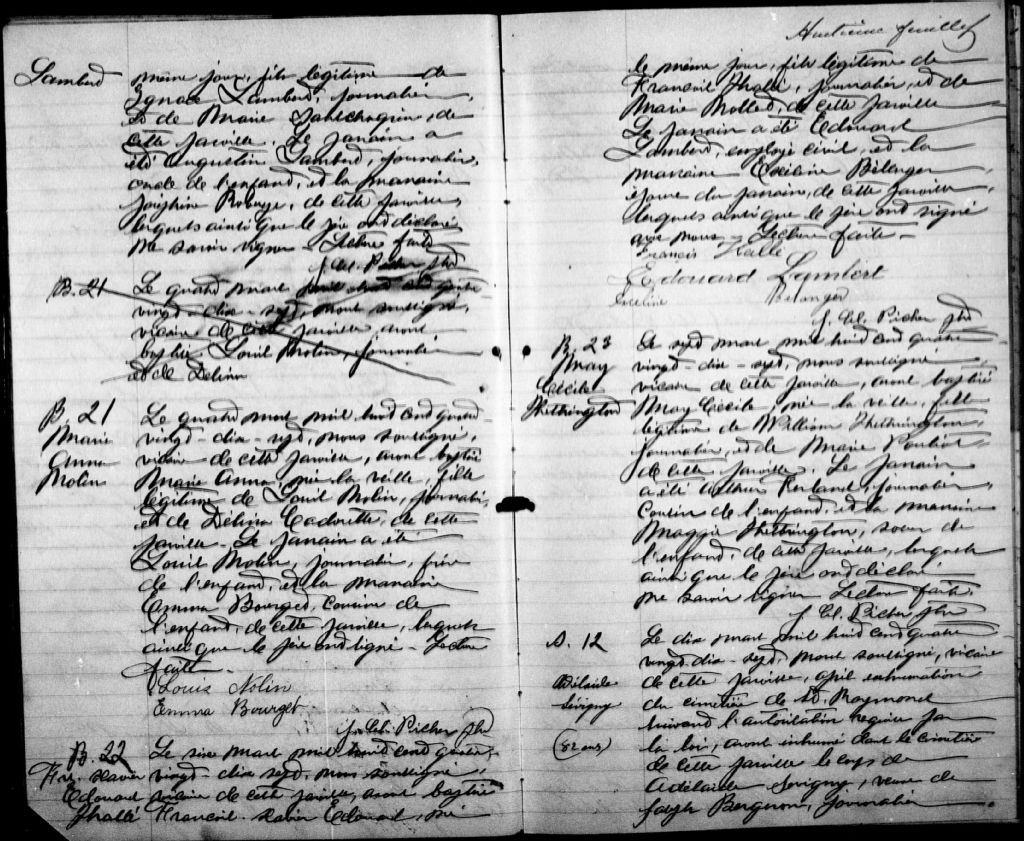 Lambert
même jour, fils légitime de
Ignace Lambert, journalier,
et de Marie
cette paroisse. Le parrain a
été Augustin Lambert, journalier,
oncle de l'enfant, et la marraine
Joséphine, de cette paroisse,
lesquels ainsi que le père ont déclaré
ne savoir signer. Lecture faite
J. Cl. Picher ptre
B. 21
Le quatre mars mil huit cent quatre
vingt-dix-sept, nous soussigné,
vicaire de cette paroisse avons
baptisé Louis Nolin, journalier
et de Délina
B. 21
Marie
Anna
Nolin
Le quatre mars mil huit cent quatre
vingt-dix-sept, nous soussigné,
vicaire de cette paroisse, avons baptisé
Marie Anna, née la veille, fille
légitime de Louis Nolin, journalier
et de Délina Cadorette, de cette
paroisse. Le parrain a été
Louis Nolin, journalier, frère
de l'enfant, et la marraine
Emma Bourget, cousine de
l'enfant, de cette paroisse, lesquels
ainsi que le père ont signé. Lecture
faite.
Louis Nolin
Emma Bourget
J. Cl. Picher ptre
B. 22
Frs. Xavier
Edouard
Hallé
Le six mars mil huit cent quatre
vingt-dix sept, nous soussigné,
vicaire de cette paroisse, avons baptisé
François Xavier Edouard, né
Huitième feuillet
le même jour, fils légitime de
François Hallé, journalier, et de
Marie, de cette paroisse
Le parrain a été Edouard
Lambert, employé civil, et la
marraine Exéline Bélanger
épouse du parrain, de cette paroisse,
lesquels ainsi que le père ont signé
avec nous. Lecture faite.
Francis Halle
Edouard Lambert
Exeline Belanger
J. Cl. Picher ptre
B. 23
May
Cécile
Hethrington
Le sept mars mil huit cent quatre
vingt-dix-sept, nous soussigné
vicaire de cette paroisse, avons baptisé
May Cécile, née la veille, fille
légitime de William Hethrington,
journalier, et de Marie Pouliot
de cette paroisse. Le parrain
a été Arthur, journalier,
cousin de l'enfant, et la marraine
Maggie Hethrington, soeur de
l'enfant, de cette paroisse, lesquels
ainsi que le père ont déclaré
ne savoir signer. Lecture faite.
J. Cl. Picher ptre
S. 12
Adélaide
Sévigny
(82 ans)
Le dix mars mil huit cent quatre
vingt-dix-sept, nous soussigné, vicaire
de cette paroisse, après exhumation
du cimetière de St. Raymond
suivant l'autorisation requise par
la loi, avons inhumé dans le cimetière
de cette paroisse le corps de
Adélaide Sevigny, veuve de
Joseph Bergeron, journalier